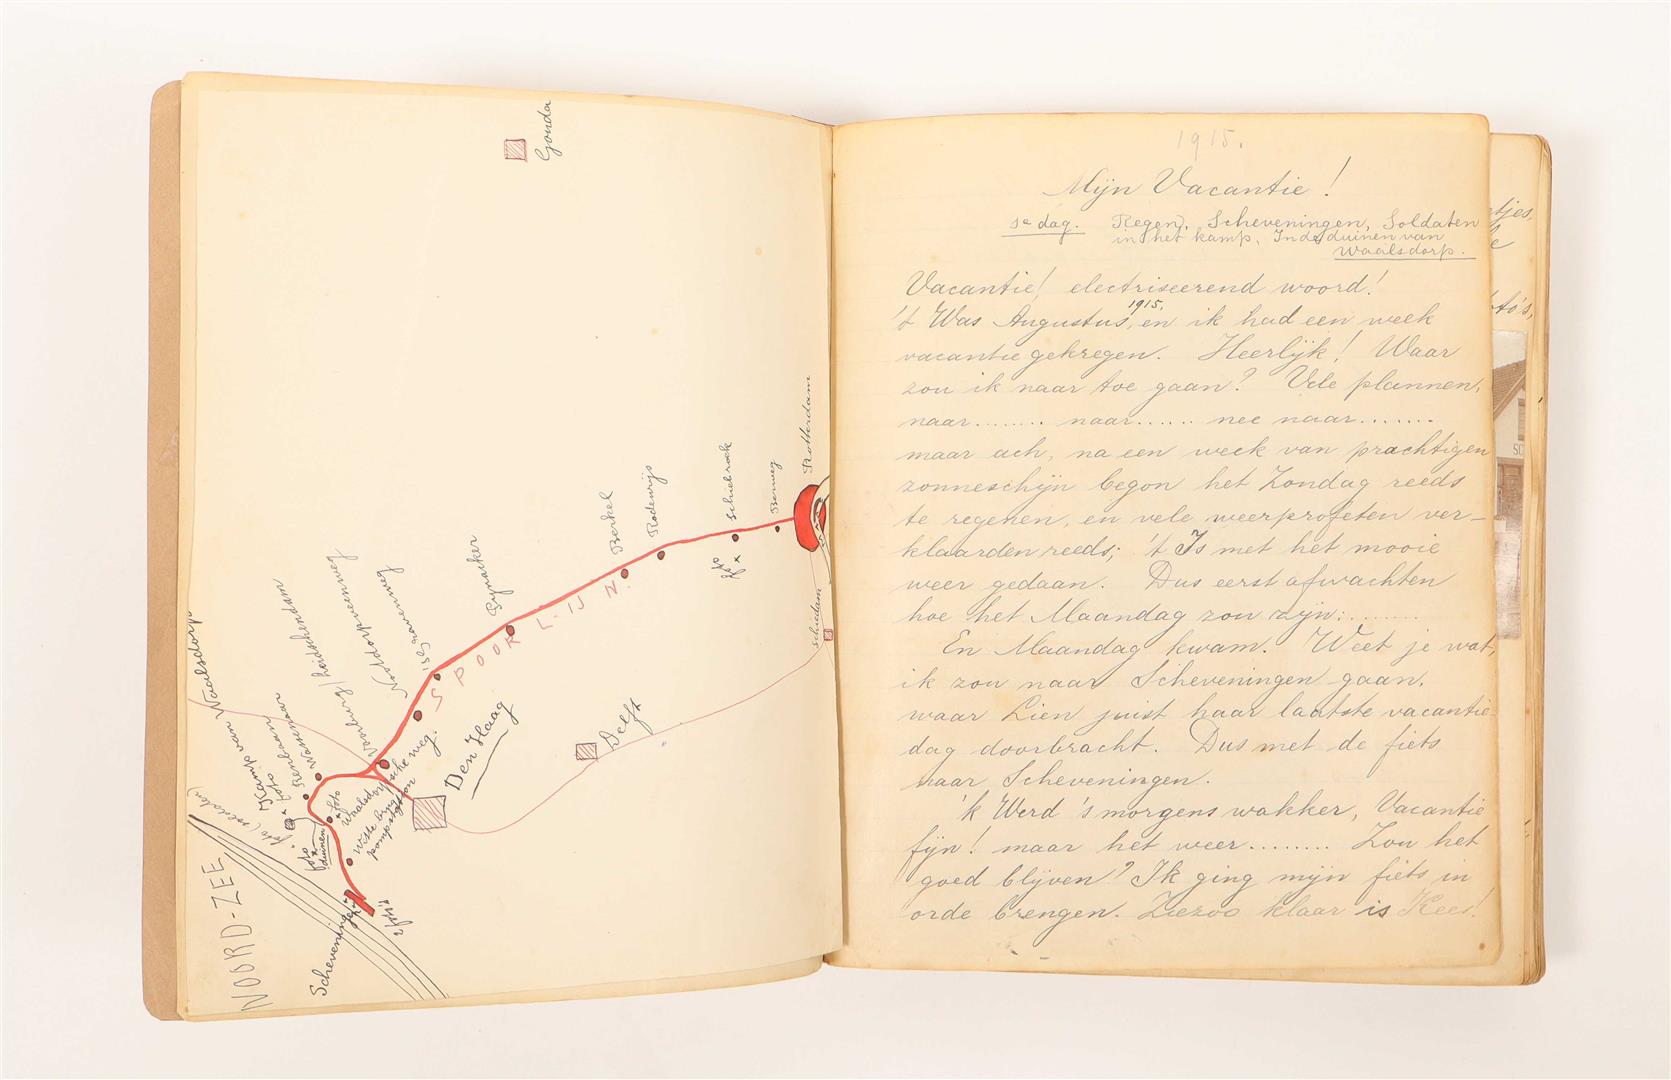 Gouda
Rotterdam
Bergweg
Schiebroek
foto
Rodenrijs
Berkel
Pijnacker
SPOORLIJN.
Schiedam
Delft
Den Haag
Nootdorpscheweg.
Voorburg/Leidschendam
Wassenaar
Renbaan
foto
Kamp van Waalsdorp
foto (soldaten)
foto
duinen
foto
Waalsdorp
pompstation
Scheveningen
2 foto's
NOORD-ZEE
1915.
Mijn Vacantie!
1e dag. Regen, Scheveningen, Soldaten
in het kamp, In de duinen van
Waalsdorp.
Vacantie! electriseerend woord!
't Was Augustus, 1915, en ik had een week
vacantie gekregen. Heerlijk! Waar
zou ik naar toe gaan? Vele plannen,
naar........ naar...... nee naar.......
maar ach, na een week van prachtigen
zonneschijn begon het Zondag reeds
te regenen, en vele weerprofeten ver-
klaarden reeds; 't Is met het mooie
weer gedaan. Dus eerst afwachten
hoe het Maandag zou zijn:........
En Maandag kwam. Weet je wat,
ik zou naar Scheveningen gaan.
waar Lien juist haar laatste vacantie-
dag doorbracht. Dus met de fiets
naar Scheveningen.
'k Werd 's morgens wakker, Vacantie
fijn! maar het weer........ Zou het
goed blijven? Ik ging mijn fiets in
orde brengen. Ziezoo klaar is Kees!
etjes,
oto's,